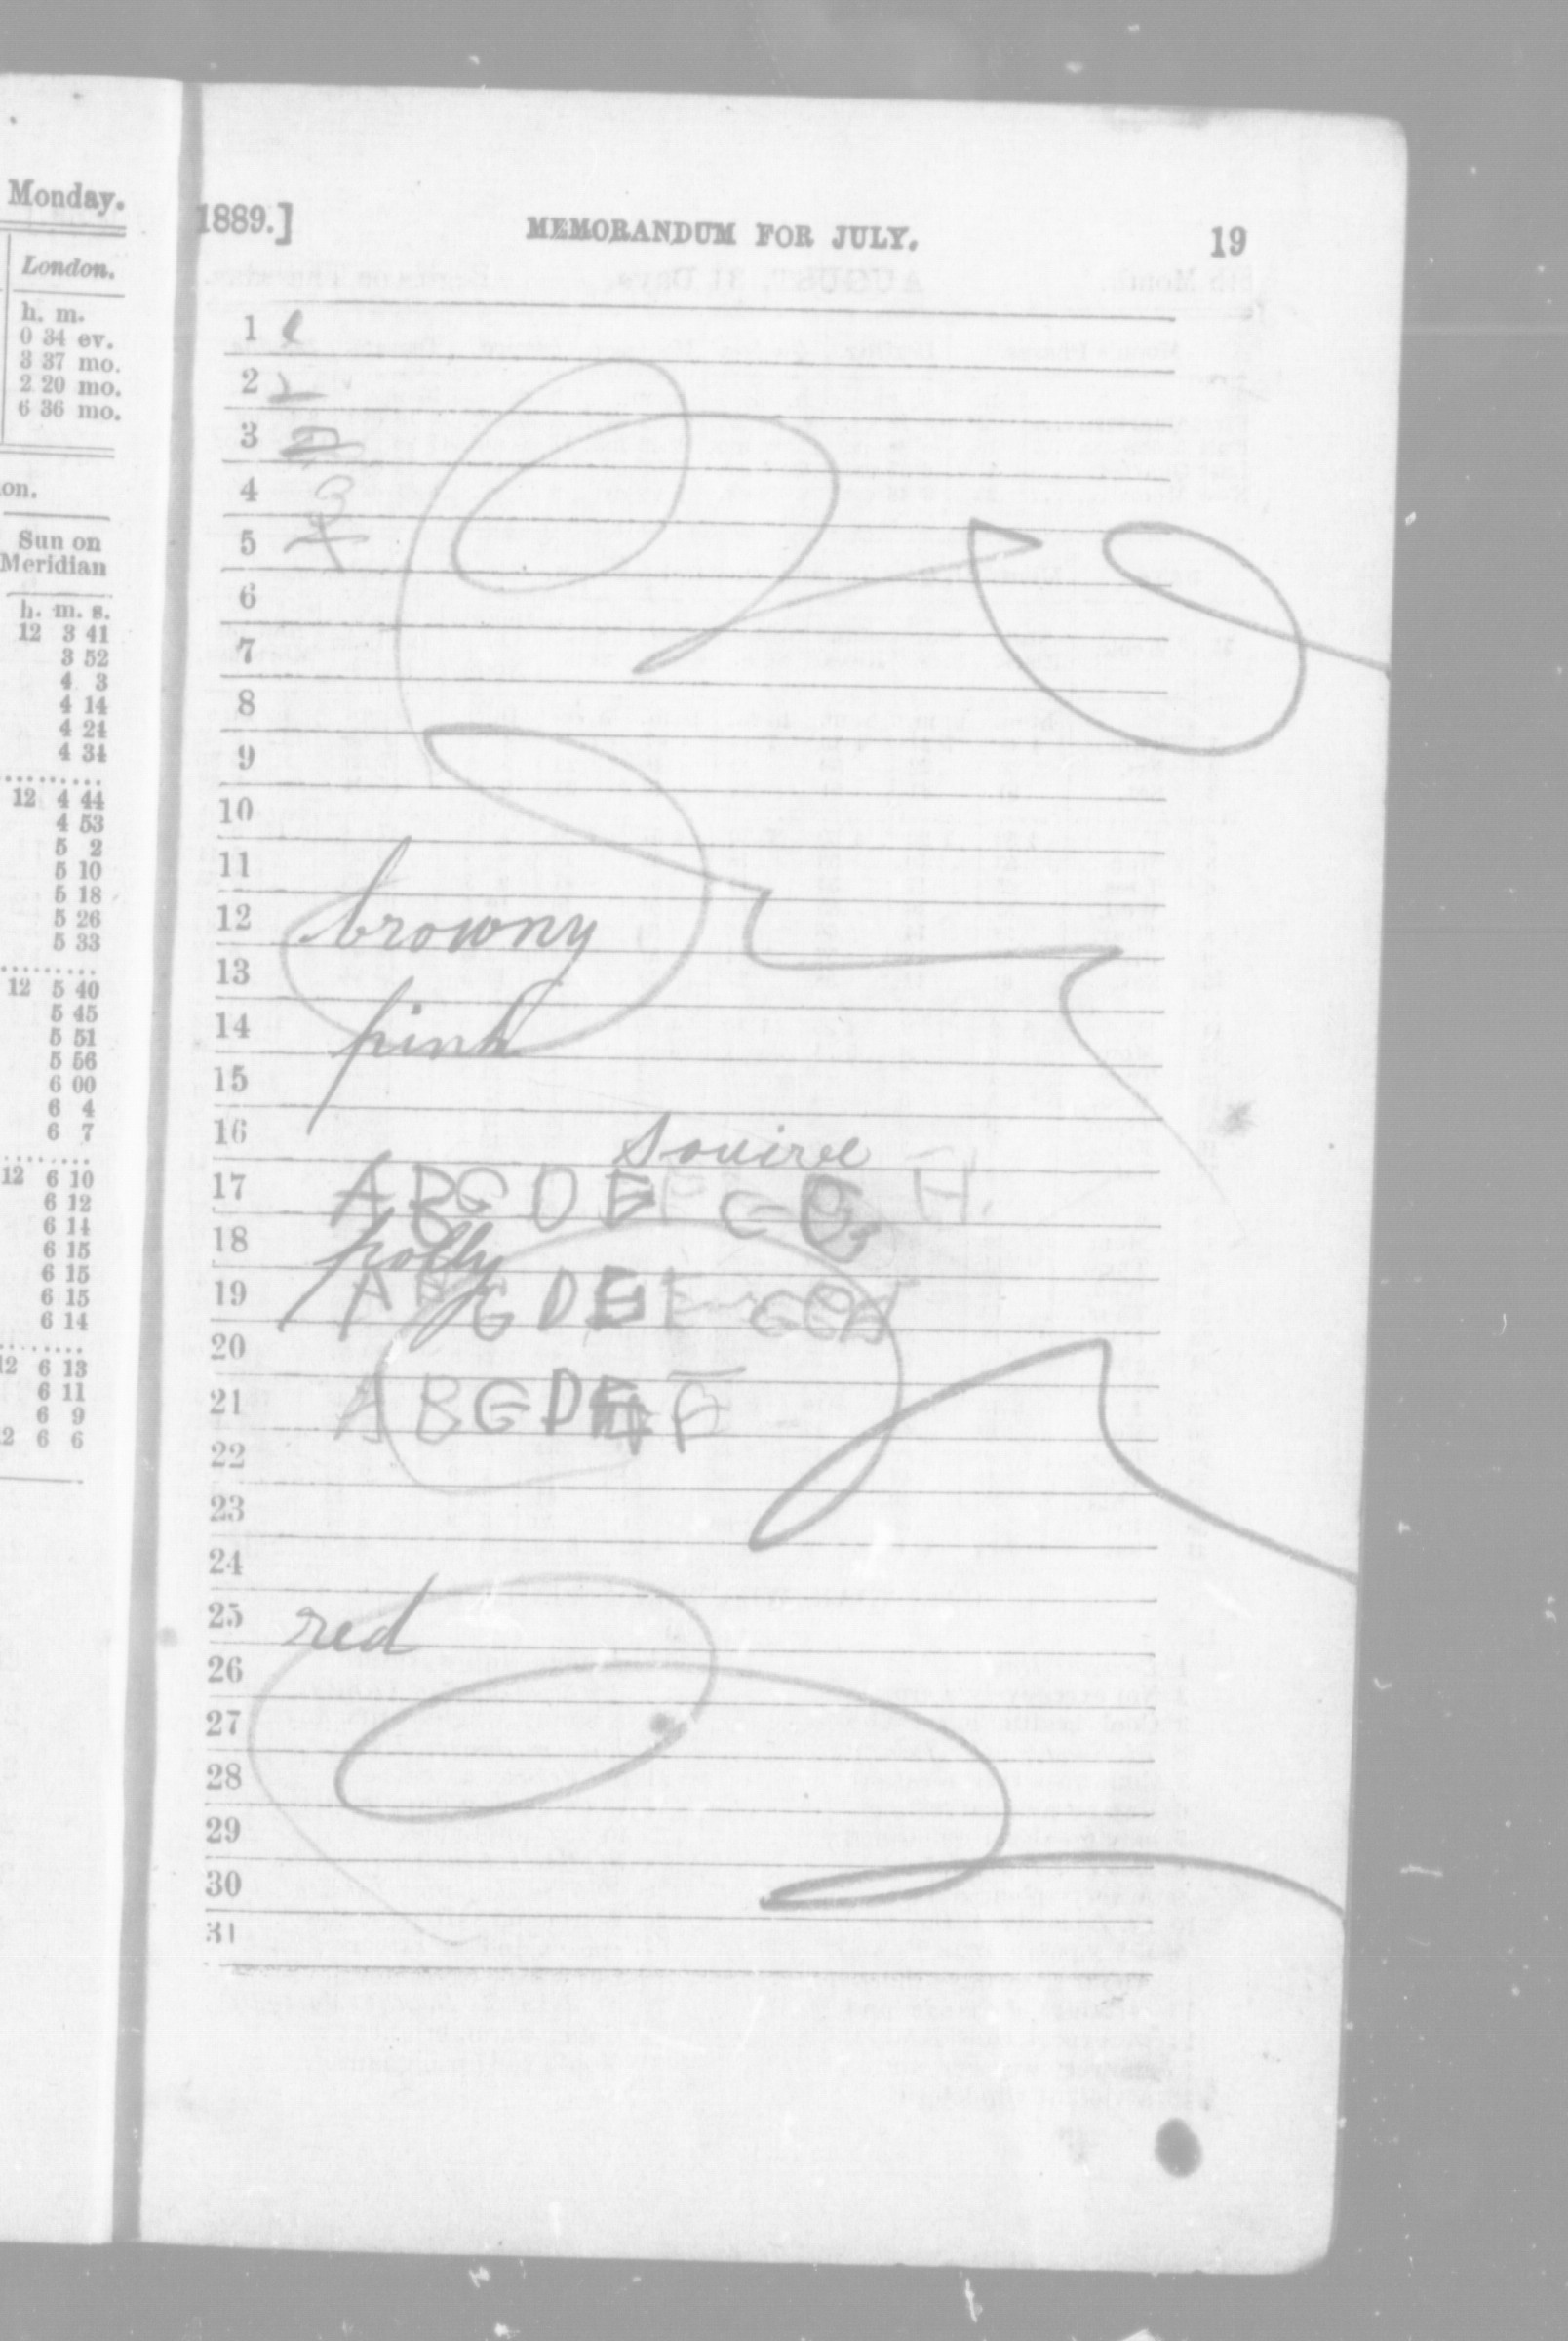 Monday.
London.
h. m.
0 34 ev.
3 37 mo.
2 20 mo.
6 36 mo.
on.
Sun on
Meridian
h. m. s.
12 3 41
3 52
4 3
4 14
4 24
4 34
12 4 44
4 53
5 2
5 10
5 18
5 26
5 33
12 5 40
5 45
5 51
5 56
6 00
6 4
6 7
12 6 10
6 12
6 14
6 15
6 15
6 15
6 14
12 6 13
6 11
6 9
2 6 6
1889.] MEMORANDUM FOR JULY. 19
1
2 2
3
4 3
5 4
6
7
8
9
10
11
12 browny
13
14 pink
15
16 squirel
17 A B G D E F G G H
18 polly
19 A B G D E
20
21 A B G D E
22
23
24
25 red
26
27
28
29
30
31